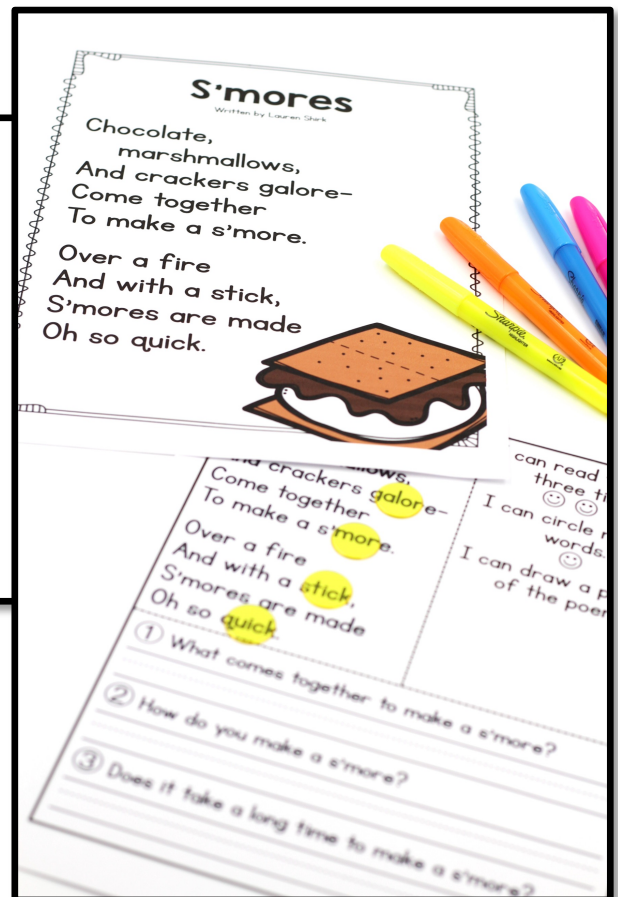 S'mores
Written by Lauren Shirk
Chocolate,
marshmallows,
And crackers galore-
Come together
To make a s'more.
Over a fire
And with a stick,
S'mores are made
Oh so quick.
Sharpie
crackers galore-
Come together
To make a s'more.
Over a fire
And with a stick,
S'mores are made
Oh so quick.
can read
three
I can circle
words.
I can draw a
of the poem
1 What comes together to make a s'more?
2 How do you make a s'more?
3 Does it take a long time to make a s'more?